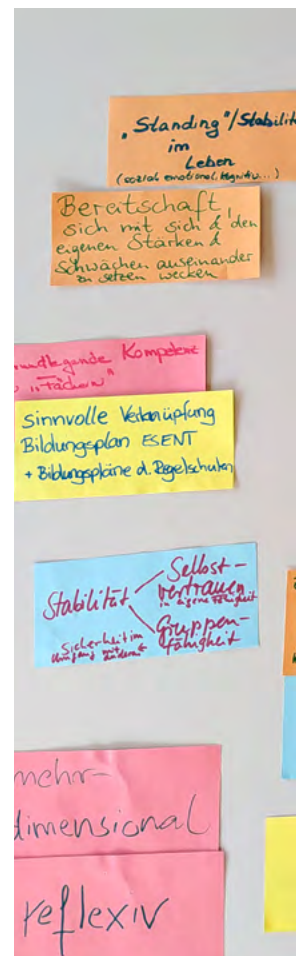 „Standing"/Stabilit
im
Leben
(sozial, emotional, kognitiv...)
Bereitschaft,
sich mit sich & den
eigenen Stärken &
Schwächen auseinander
zu setzen wecken
undlegende Kompetenz
"Fächern"
Sinnvolle Verknüpfung
Bildungsplan ESENT
+ Bildungspläne d. Regelschulen
Stabilität
Selbst-
vertrauen
in eigene Fähigkeit
Gruppen-
fähigkeit
Sicherheit im
Umgang mit
anderen
mehr-
dimensional
reflexiv